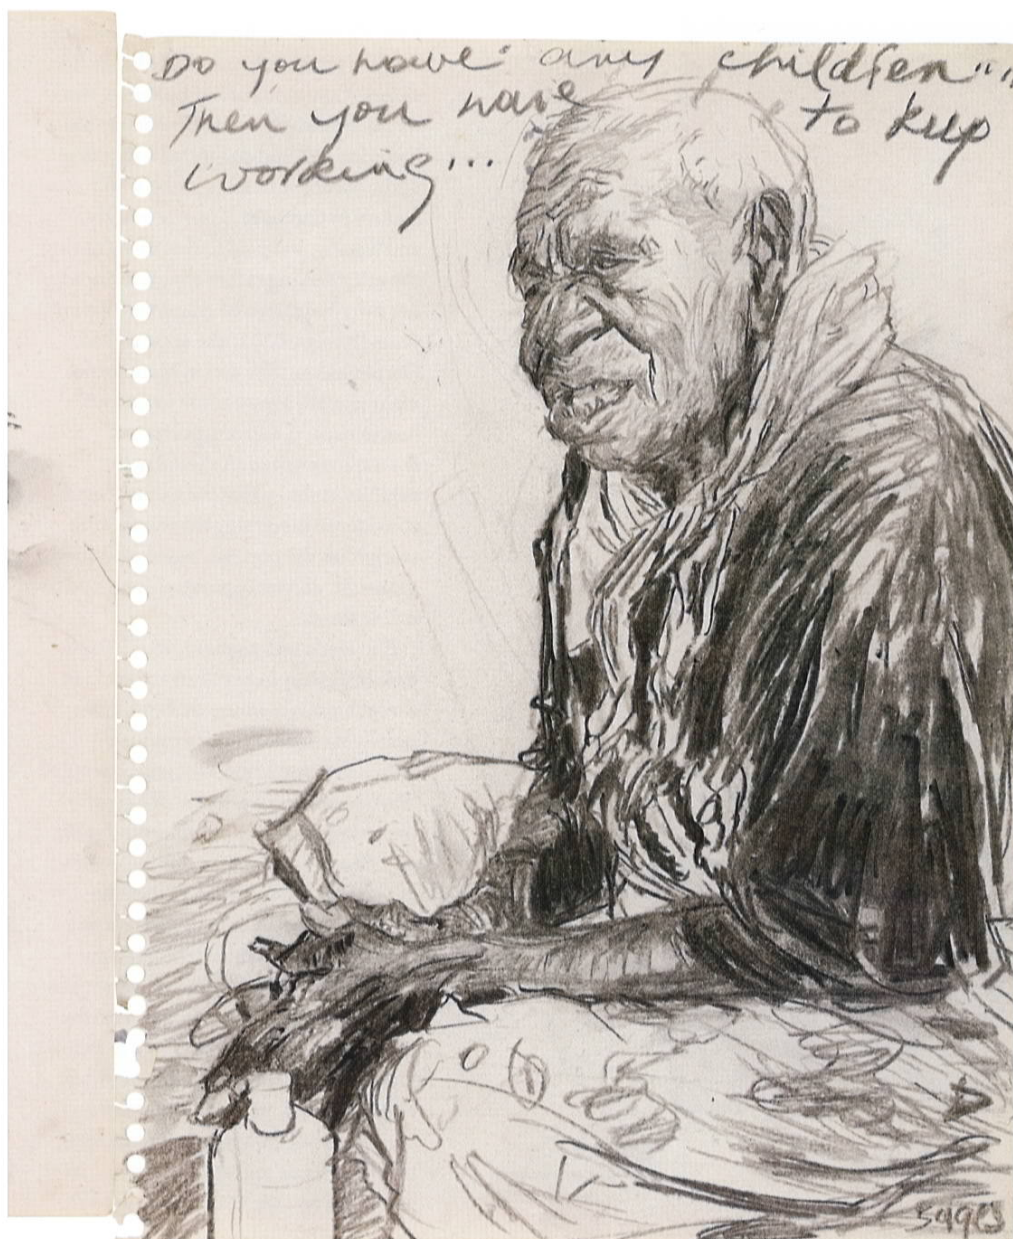 Do you have any children...
Then you have to keep
working...
sages